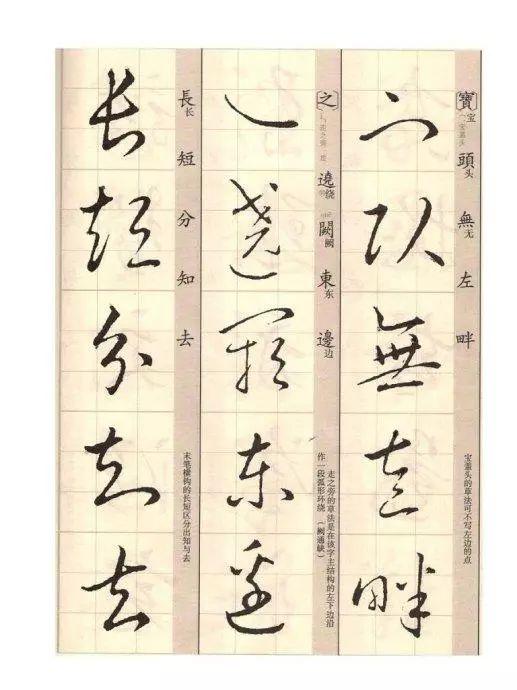 宀頭無左畔
[寶]宝(宝盖头)頭头無无左畔
宝盖头的草法可不写左边的点
辶遶闕東邊
[之]遶绕闕阙東东邊边
走之旁的草法是在该字主结构的左下边沿
作一段弧形环绕（阙通缺）
長短分知去
長长短分知去
末笔横钩的长短区分出知与去